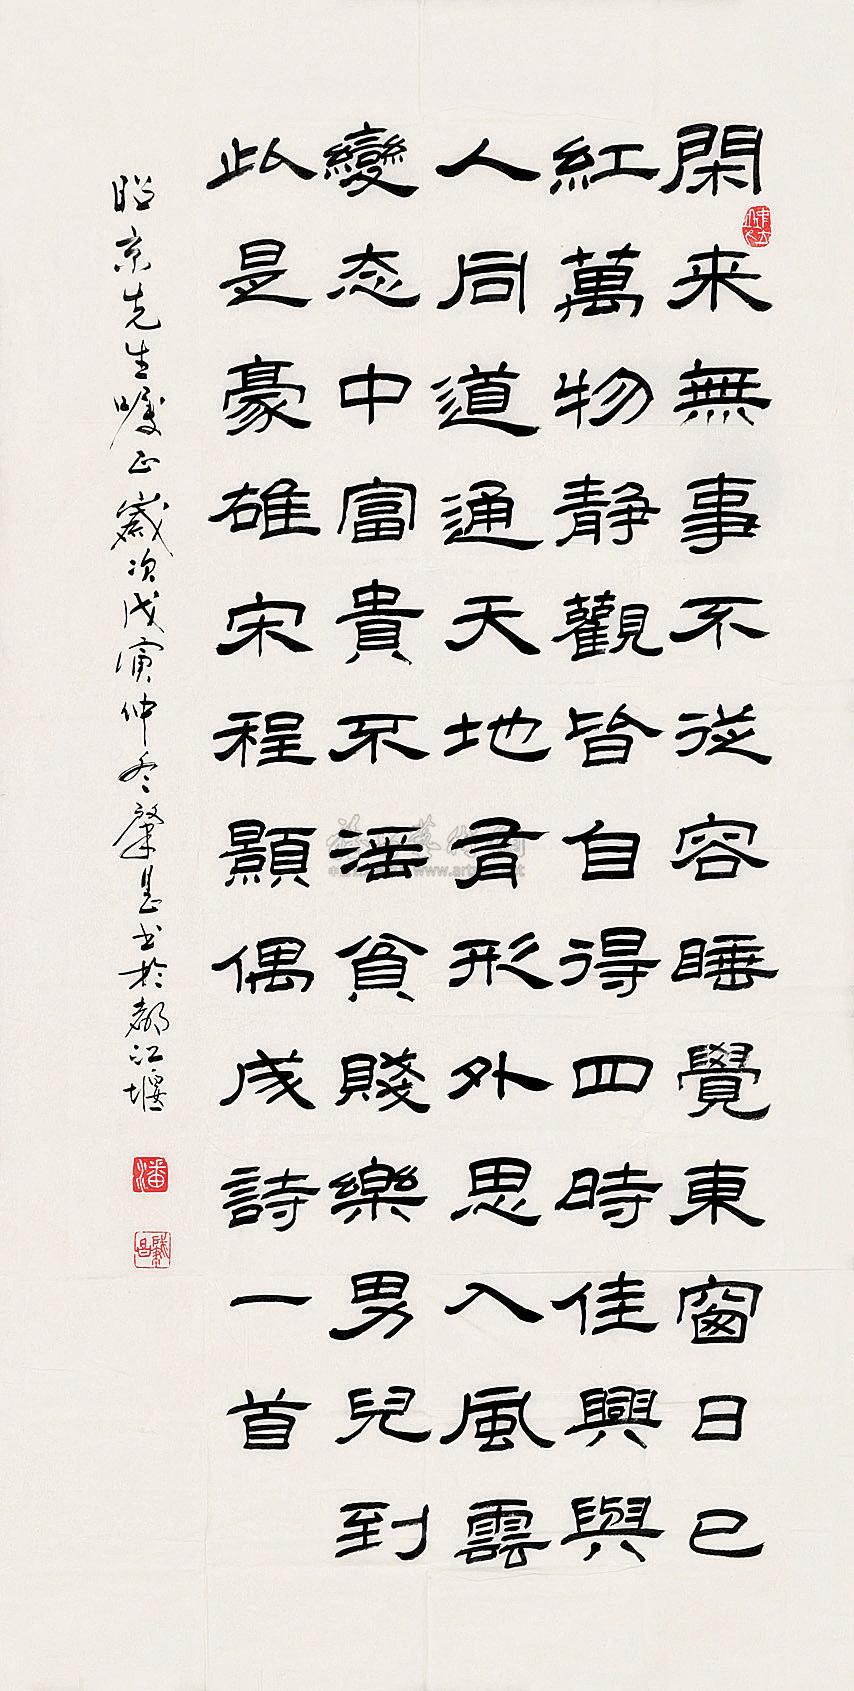 閑来無事不從容睡覺東窗日已
紅萬物靜觀皆自得四時佳興與
人同道通天地有形外思入風雲
變态中富貴不淫貧賤樂男兒到
此是豪雄宋程顥偶成詩一首
昭京先生嘱正歲次戊寅仲冬肇书於都江堰
潘